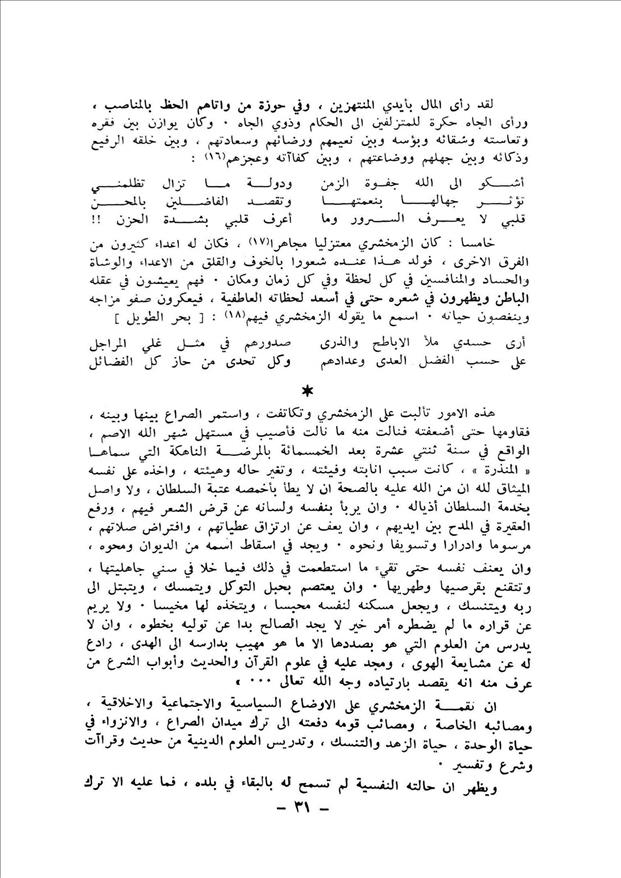 لقد رأى المال بأيدي المنتهزين ، وفي حوزة من واتاهم الحظ بالمناصب ،
ورأى الجاه حكرة للمتزلفين الى الحكام وذوي الجاه ٠ وكان يوازن بين فقره
وتعاسته وشقائه وبؤسه وبين نعيمهم ورضائهم وسعادتهم ، وبين خلقه الرفيع
وذكائه وبين جهلهم ووضاعتهم ، وبين كفاآته وعجزهم(١٦) :
أشـــكو الى الله جفوة الزمن ودولــة مــا تزال تظلمنــي
تؤثــر جهالهــا بنعمتهــا وتقصد الفاضلــين بالمحــن
قلبي لا يعــرف الســرور وما أعرف قلبي بشــدة الحزن !!
خامسا : كان الزمخشري معتزليا مجاهرا(١٧) ، فكان له اعداء كثيرون من
الفرق الاخرى ، فولد هــذا عنــده شعورا بالخوف والقلق من الاعداء والوشاة
والحساد والمنافسين في كل لحظة وفي كل زمان ومكان ٠ فهم يعيشون في عقله
الباطن ويظهرون في شعره حتى في أسعد لحظاته العاطفية ، فيعكرون صفو مزاجه
وينغصون حياته ٠ اسمع ما يقوله الزمخشري فيهم(١٨) : [ بحر الطويل ]
أرى حسدي ملأ الاباطح والذرى صدورهم في مثــل غلي المراجل
على حسب الفضل العدى وعدادهم وكل تحدى من حاز كل الفضائل
*
هذه الامور تألبت على الزمخشري وتكاتفت ، واستمر الصراع بينها وبينه ،
فقاومها حتى أضعفته فنالت منه ما نالت فأصيب في مستهل شهر الله الاصم ،
الواقع في سنة ثنتي عشرة بعد الخمسمائة بالمرضــة الناهكة التي سماهـا
« المنذرة » ، كانت سبب انابته وفيئته ، وتغير حاله وهيئته ، واخذه على نفسه
الميثاق لله ان من الله عليه بالصحة ان لا يطأ بأخمصه عتبة السلطان ، ولا واصل
بخدمة السلطان أذياله ٠ وان يربأ بنفسه ولسانه عن قرض الشعر فيهم ، ورفع
العقيرة في المدح بين ايديهم ، وان يعف عن ارتزاق عطياتهم ، وافتراض صلاتهم ،
مرسوما وادرارا وتسويفا ونحوه ٠ ويجد في اسقاط اسمه من الديوان ومحوه ،
وان يعنف نفسه حتى تقيء ما استطعمت في ذلك فيما خلا في سني جاهليتها ،
وتتقنع بقرصيها وطهريها ٠ وان يعتصم بحبل التوكل ويتمسك ، ويتبتل الى
ربه ويتنسك ، ويجعل مسكنه لنفسه محبسا ، ويتخذه لها مخيسا ٠ ولا يريم
عن قراره ما لم يضطره أمر خير لا يجد الصالح بدا عن توليه بخطوه ، وان لا
يدرس من العلوم التي هو بصددها الا ما هو مهيب بدارسه الى الهدى ، رادع
له عن مشايعة الهوى ، ومجد عليه في علوم القرآن والحديث وأبواب الشرع من
عرف منه انه يقصد بارتياده وجه الله تعالى ٠٠٠ »
ان نقمــة الزمخشري على الاوضاع السياسية والاجتماعية والاخلاقية ،
ومصائبه الخاصة ، ومصائب قومه دفعته الى ترك ميدان الصراع ، والانزواء في
حياة الوحدة ، حياة الزهد والتنسك ، وتدريس العلوم الدينية من حديث وقراآت
وشرع وتفسير ٠
ويظهر ان حالته النفسية لم تسمح له بالبقاء في بلده ، فما عليه الا ترك
– ٣١ –